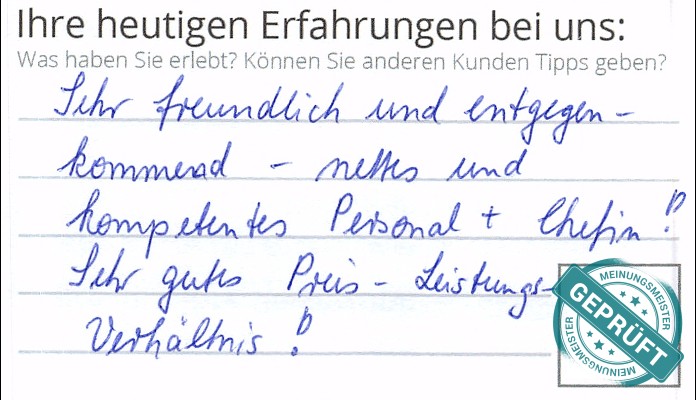 Ihre heutigen Erfahrungen bei uns:
Was haben Sie erlebt? Können Sie anderen Kunden Tipps geben?
Sehr freundlich und entgegen-
kommend - nettes und
kompetentes Personal + Chefin!
Sehr gutes Preis- Leistungs-
Verhältnis!
MEINUNGSMEISTER
GEPRÜFT
MEINUNGSMEISTER
MEINUNGSMEISTER